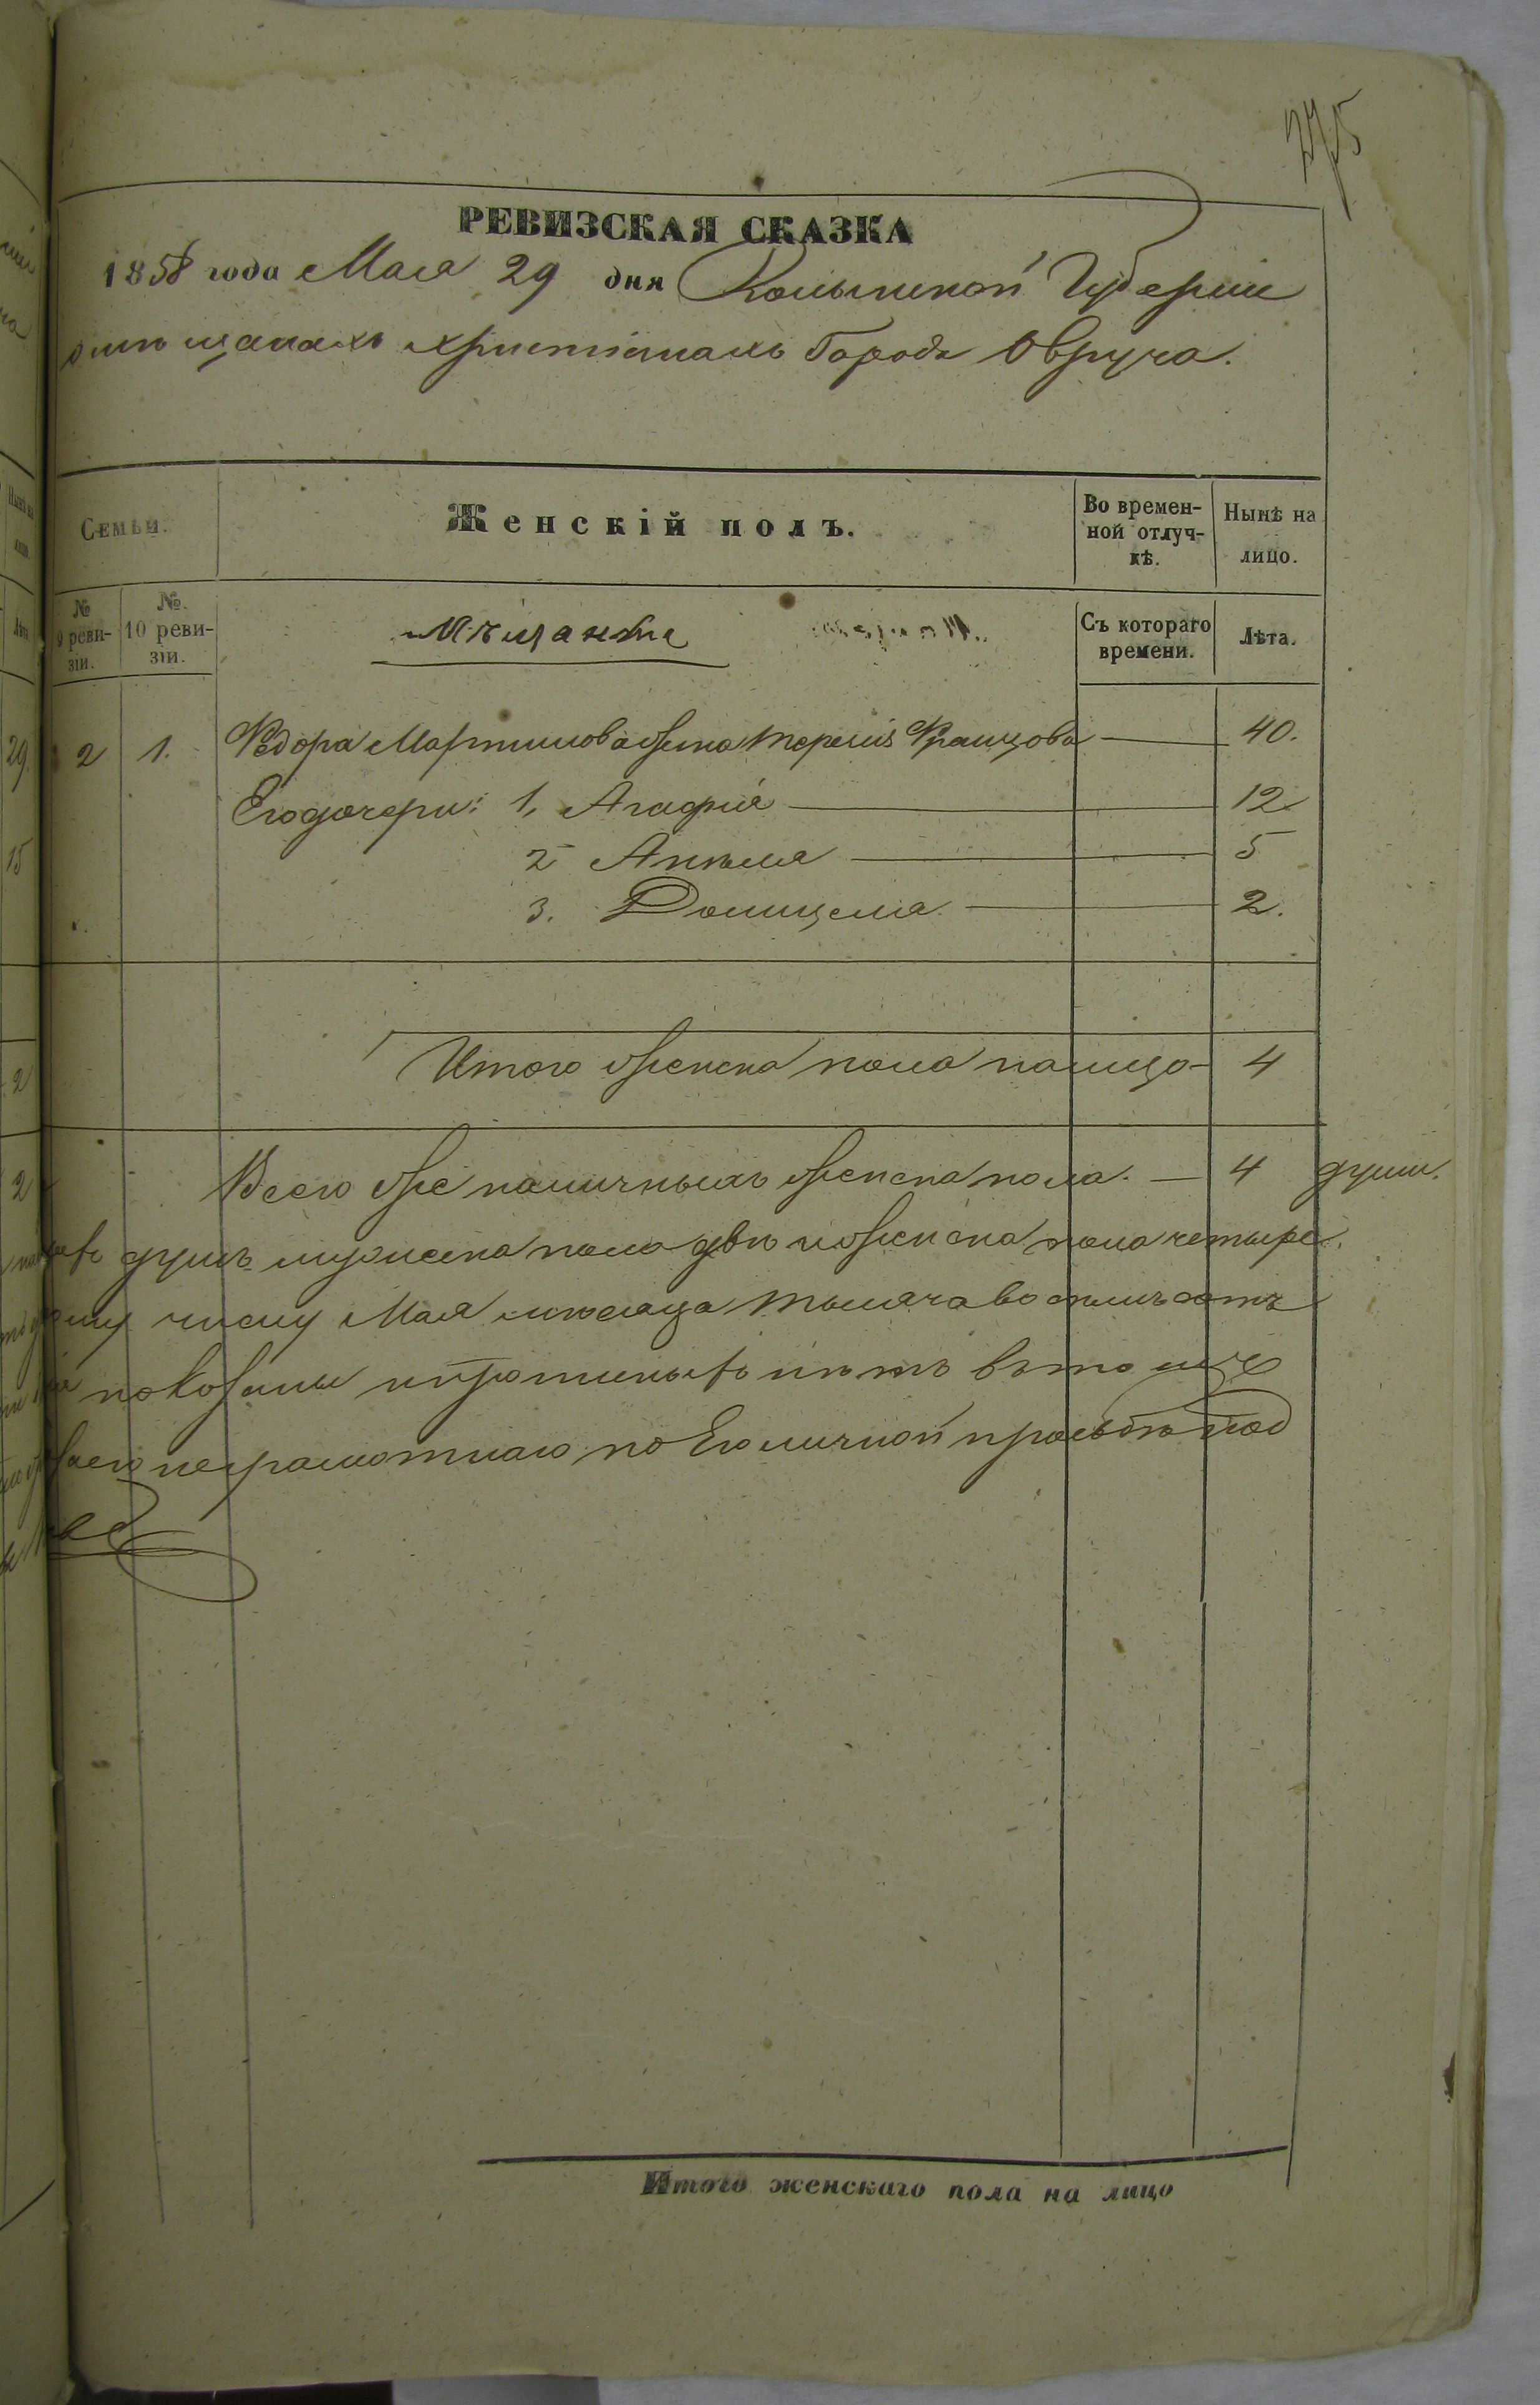 775
РЕВИЗСКАЯ СКАЗКА
1858 года Мая 29 дня Волынской Губерніи
мѣщанахъ христіанахъ Города Овруча.
Семьи.
Женскій полъ.
Во времен-
ной отлуч-
кѣ.
Нынѣ на
лицо.
№
9 реви-
зіи.
№.
10 реви-
зіи.
Мѣщанъ
Съ котораго
времени.
Лѣта.
2 1. Федора Мартинова жена Терезія Францова 40.
Его дочери: 1, Агафія 12
2 Анѣля 5
3. Домицеля 2.
Итого женска пола налицо 4
Всего же наличныхъ женска пола. 4 души.
душъ мужеска пола двѣ и женска пола четыре.
числу Мая мѣсяца тысяча восемьсотъ
нѣтъ въ томъ
неграмотнаго по Его личной прозьбѣ
Итого женскаго пола на лицо